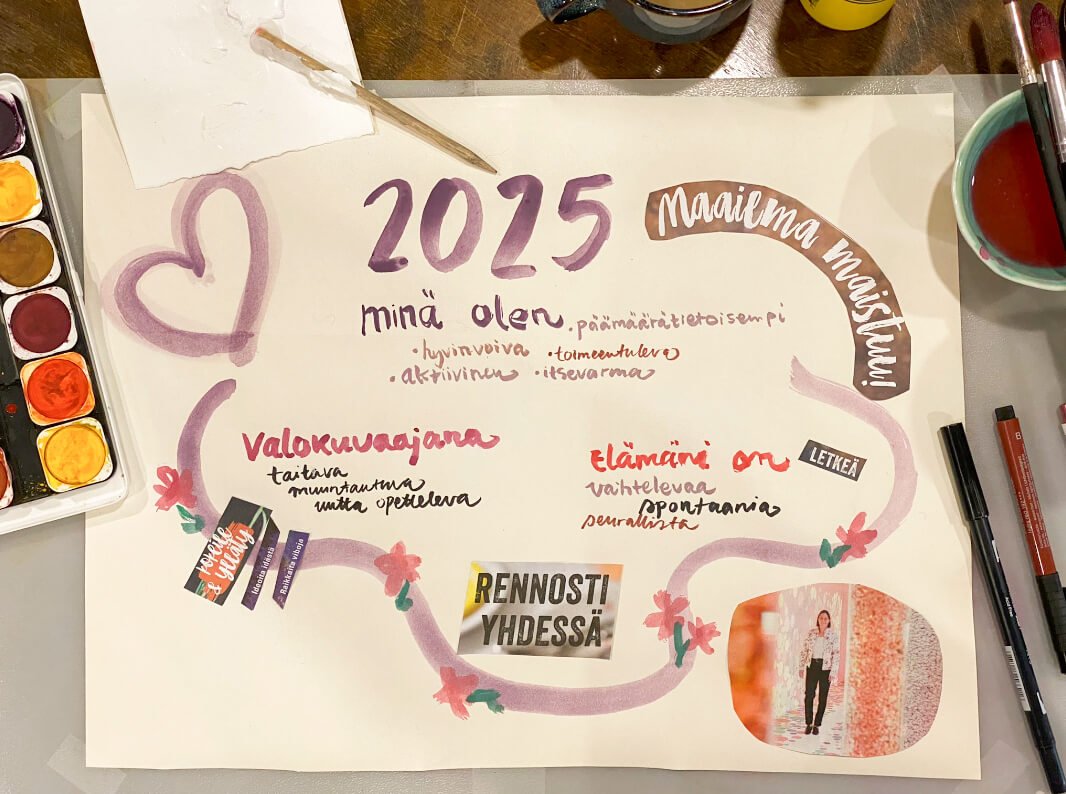 2025
Maailma maistuu!
minä olen
• päämäärätietoisempi
• hyvinvoiva • toimeentuleva
• aktiivinen • itsevarma
Valokuvaajana
taitava
muuntautuva
uutta opetteleva
Elämäni on
vaihtelevaa
spontaania
seurallista
LETKEÄ
Kokeile
& ylläty
Ideoita idästä
Raikkaita vihoja
RENNOSTI
YHDESSÄ
B